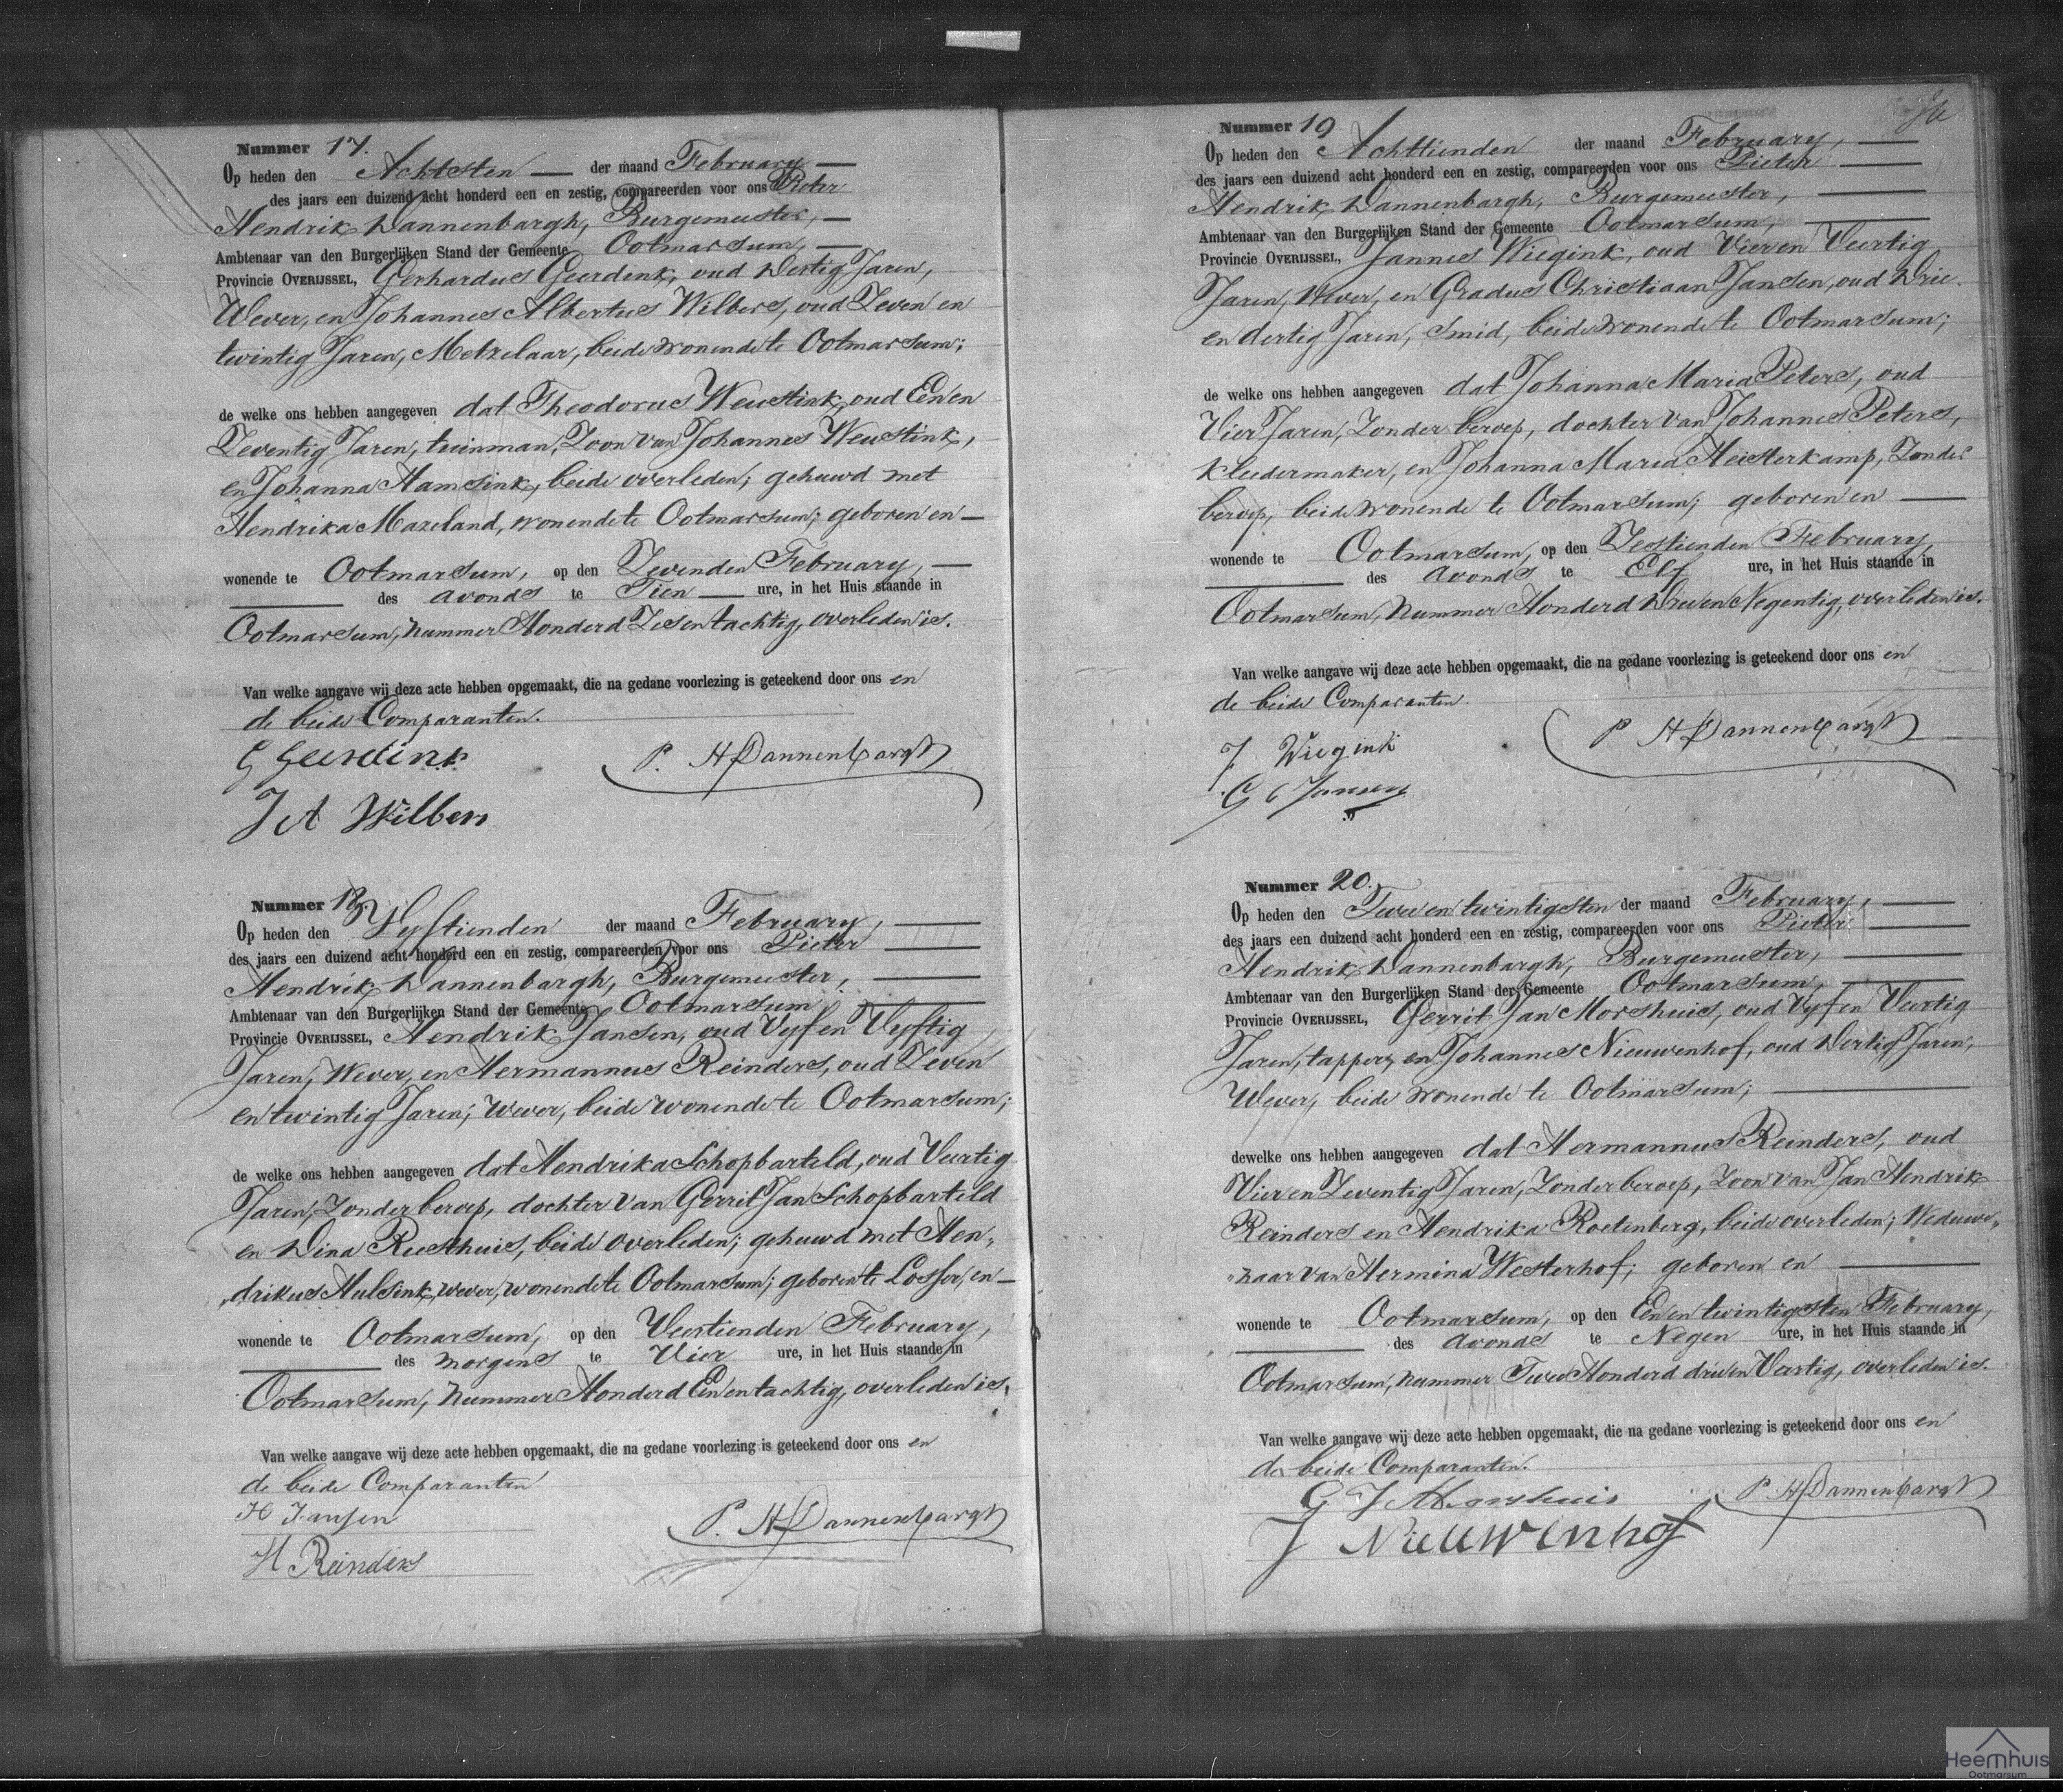 Nummer 17.
Op heden den Achtsten der maand February
des jaars een duizend acht honderd een en zestig, compareerden voor ons Pieter
Hendrik Dannenbargh, Burgemeester,
Ambtenaar van den Burgerlijken Stand der Gemeente Ootmarsum,
Provincie OVERIJSSEL, Gerhardus Geerdink, oud Dertig Jaren,
Wever, en Johannes Albertus Wilbers, oud Zeven en
twintig Jaren, Metzelaar, beide wonende te Ootmarsum;
de welke ons hebben aangegeven dat Theodorus Weustink, oud Een en
Zeventig Jaren, tuinman, Zoon van Johannes Weustink,
en Johanna Hamsink, beide overleden; gehuwd met
Hendrika Mazeland, wonende te Ootmarsum; geboren en
wonende te Ootmarsum, op den Zevenden February,
des avonds te Tien ure, in het Huis staande in
Ootmarsum, nummer Honderd Zes en tachtig, overleden is.
Van welke aangave wij deze acte hebben opgemaakt, die na gedane voorlezing is geteekend door ons en
de beide Comparanten.
G Geerdink
P. H Dannenbargh
J A Wilbers
Nummer 18.
Op heden den Vyftienden der maand February,
des jaars een duizend acht honderd een en zestig, compareerden voor ons Pieter
Hendrik Dannenbargh, Burgemeester,
Ambtenaar van den Burgerlijken Stand der Gemeente Ootmarsum
Provincie OVERIJSSEL, Hendrik Jansen, oud Vyf en Vyftig
Jaren, Wever, en Hermannus Reinders, oud Zeven
en twintig Jaren, wever, beide wonende te Ootmarsum;
de welke ons hebben aangegeven dat Hendrika Schopbarteld, oud Veertig
Jaren, Zonder beroep, dochter van Gerrit Jan Schopbarteld
en Dina Reesthuis, beide overleden; gehuwd met Hen„
„drikus Hulsink, wever, wonende te Ootmarsum; geboren te Losser, en
wonende te Ootmarsum, op den Veertienden February,
des morgens te Vier ure, in het Huis staande in
Ootmarsum, nummer Honderd Een en tachtig, overleden is.
Van welke aangave wij deze acte hebben opgemaakt, die na gedane voorlezing is geteekend door ons en
de beide Comparanten
H Jansen
P. H Dannenbargh
H Reinders
Nummer 19
Op heden den Achttienden der maand February,
des jaars een duizend acht honderd een en zestig, compareerden voor ons Pieter
Hendrik Dannenbargh, Burgemeester,
Ambtenaar van den Burgerlijken Stand der Gemeente Ootmarsum,
Provincie OVERIJSSEL, Jannes Wiegink, oud Vier en Veertig
Jaren, Wever, en Gradus Christiaan Jansen, oud Drie
en dertig Jaren, Smid, beide wonende te Ootmarsum;
de welke ons hebben aangegeven dat Johanna Maria Peters, oud
Vier Jaren, Zonder beroep, dochter van Johannes Peters,
kleedermaker, en Johanna Maria Heisterkamp, Zonder
beroep, beide wonende te Ootmarsum; geboren en
wonende te Ootmarsum, op den Zestienden February,
des avonds te Elf ure, in het Huis staande in
Ootmarsum, nummer Honderd Drie en Negentig, overleden is.
Van welke aangave wij deze acte hebben opgemaakt, die na gedane voorlezing is geteekend door ons en
de beide Comparanten.
P H Dannenbargh
J. Wiegink
G C Jansen
Nummer 20.
Op heden den Twee en twintigsten der maand February,
des jaars een duizend acht honderd een en zestig, compareerden voor ons Pieter
Hendrik Dannenbargh, Burgemeester,
Ambtenaar van den Burgerlijken Stand der Gemeente Ootmarsum,
Provincie OVERIJSSEL, Gerrit Jan Morshuis, oud Vyf en Veertig
Jaren, tapper, en Johannes Nieuwenhof, oud Dertig Jaren,
Wever, beide wonende te Ootmarsum;
dewelke ons hebben aangegeven dat Hermannus Reinders, oud
Vier en Zeventig Jaren, Zonder beroep, Zoon van Jan Hendrik
Reinders en Hendrika Roetenberg, beide overleden; Weduwe„
„naar van Hermina Westerhof; geboren en
wonende te Ootmarsum, op den Een en twintigsten February,
des avonds te Negen ure, in het Huis staande in
Ootmarsum, nummer Twee Honderd drie en Veertig, overleden is.
Van welke aangave wij deze acte hebben opgemaakt, die na gedane voorlezing is geteekend door ons en
de beide Comparanten.
G J Morshuis
P H Dannenbargh
J Nieuwenhof
Heemhuis
Ootmarsum